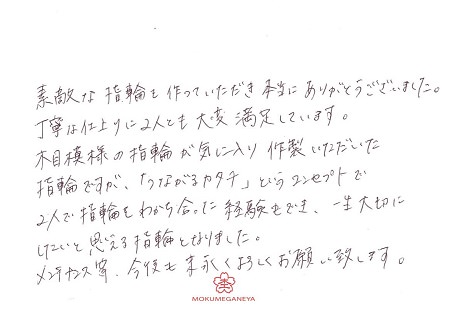 素敵な指輪を作っていただき本当にありがとうございました。
丁寧な仕上りに2人とも大変満足しています。
木目模様の指輪が気に入り作製いただいた
指輪ですが、「つながるカタチ」というコンセプトで
2人で指輪をわかち合った経験もでき、一生大切に
したいと思える指輪となりました。
メンテナンス等、今後も末永くよろしくお願い致します。
MOKUMEGANEYA